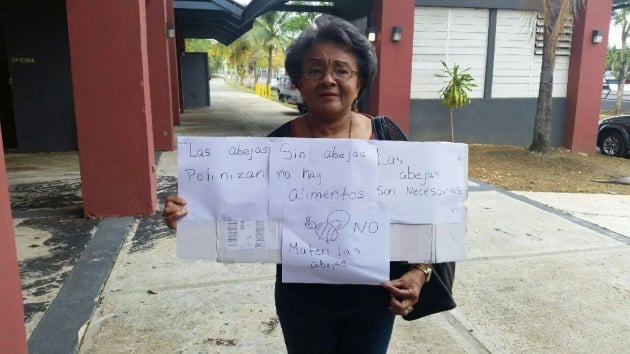 OFICINA
Las abejas
Polinizan
Sin abejas
no hay
alimentos
Las
abejas
son necesarias
NO
Maten las
abejas